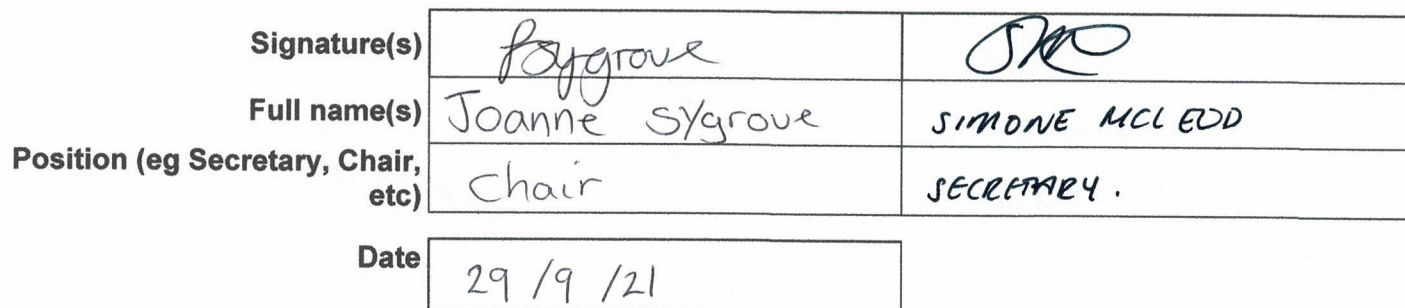 Signature(s) Jsygrove
Full name(s) Joanne Sygrove SIMONE MCLEOD
Position (eg Secretary, Chair, etc) Chair SECRETARY.
Date 29/9/21